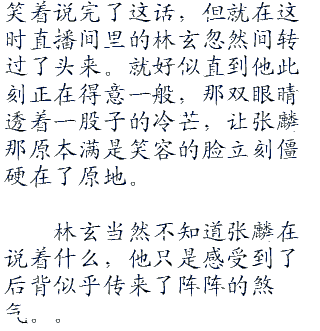 笑着说完了这话，但就在这
时直播间里的林玄忽然间转
过了头来。就好似直到他此
刻正在得意一般，那双眼睛
透着一股子的冷芒，让张麟
那原本满是笑容的脸立刻僵
硬在了原地。
林玄当然不知道张麟在
说着什么，他只是感受到了
后背似乎传来了阵阵的煞
气。。